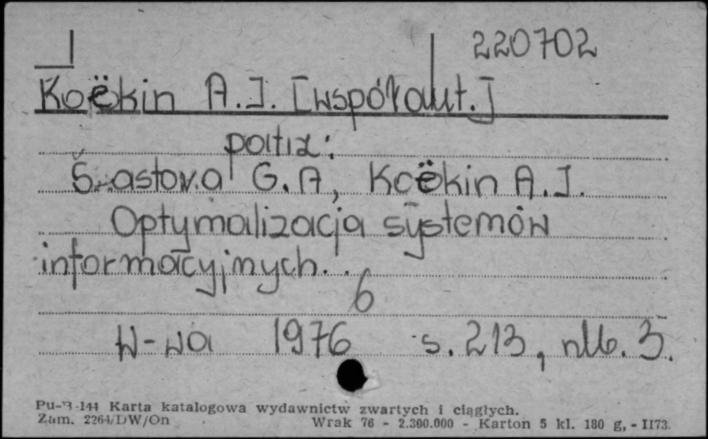 220702
Koëkin A.I. [współaut.]
patrz:
G.A, Koëkin A.I.
Optymalizacja systemów
informacyjnych..
6
W-wa 1976 s. 213, nlb. 3.
Pu-B-144 Karta katalogowa wydawnictw zwartych i ciągłych.
Zam. 2264/DW/On Wrak 76 - 2.300.000 - Karton 5 kl. 180 g, - II73.